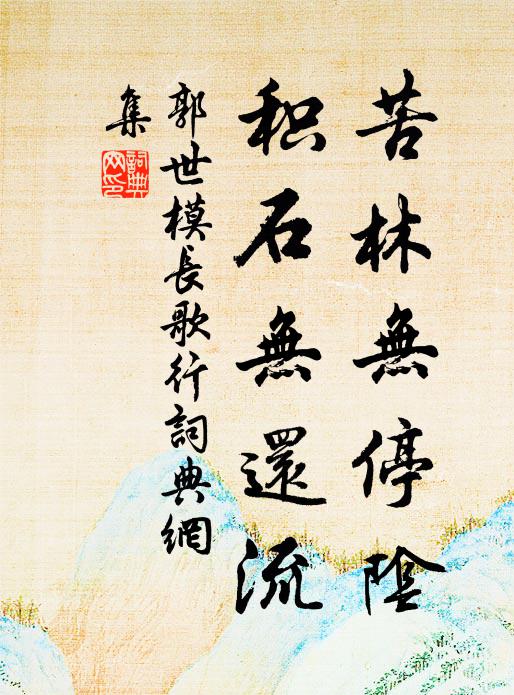 苦林無停陰
积石無還流
郭世模長歌行詞典網
集
詞典網